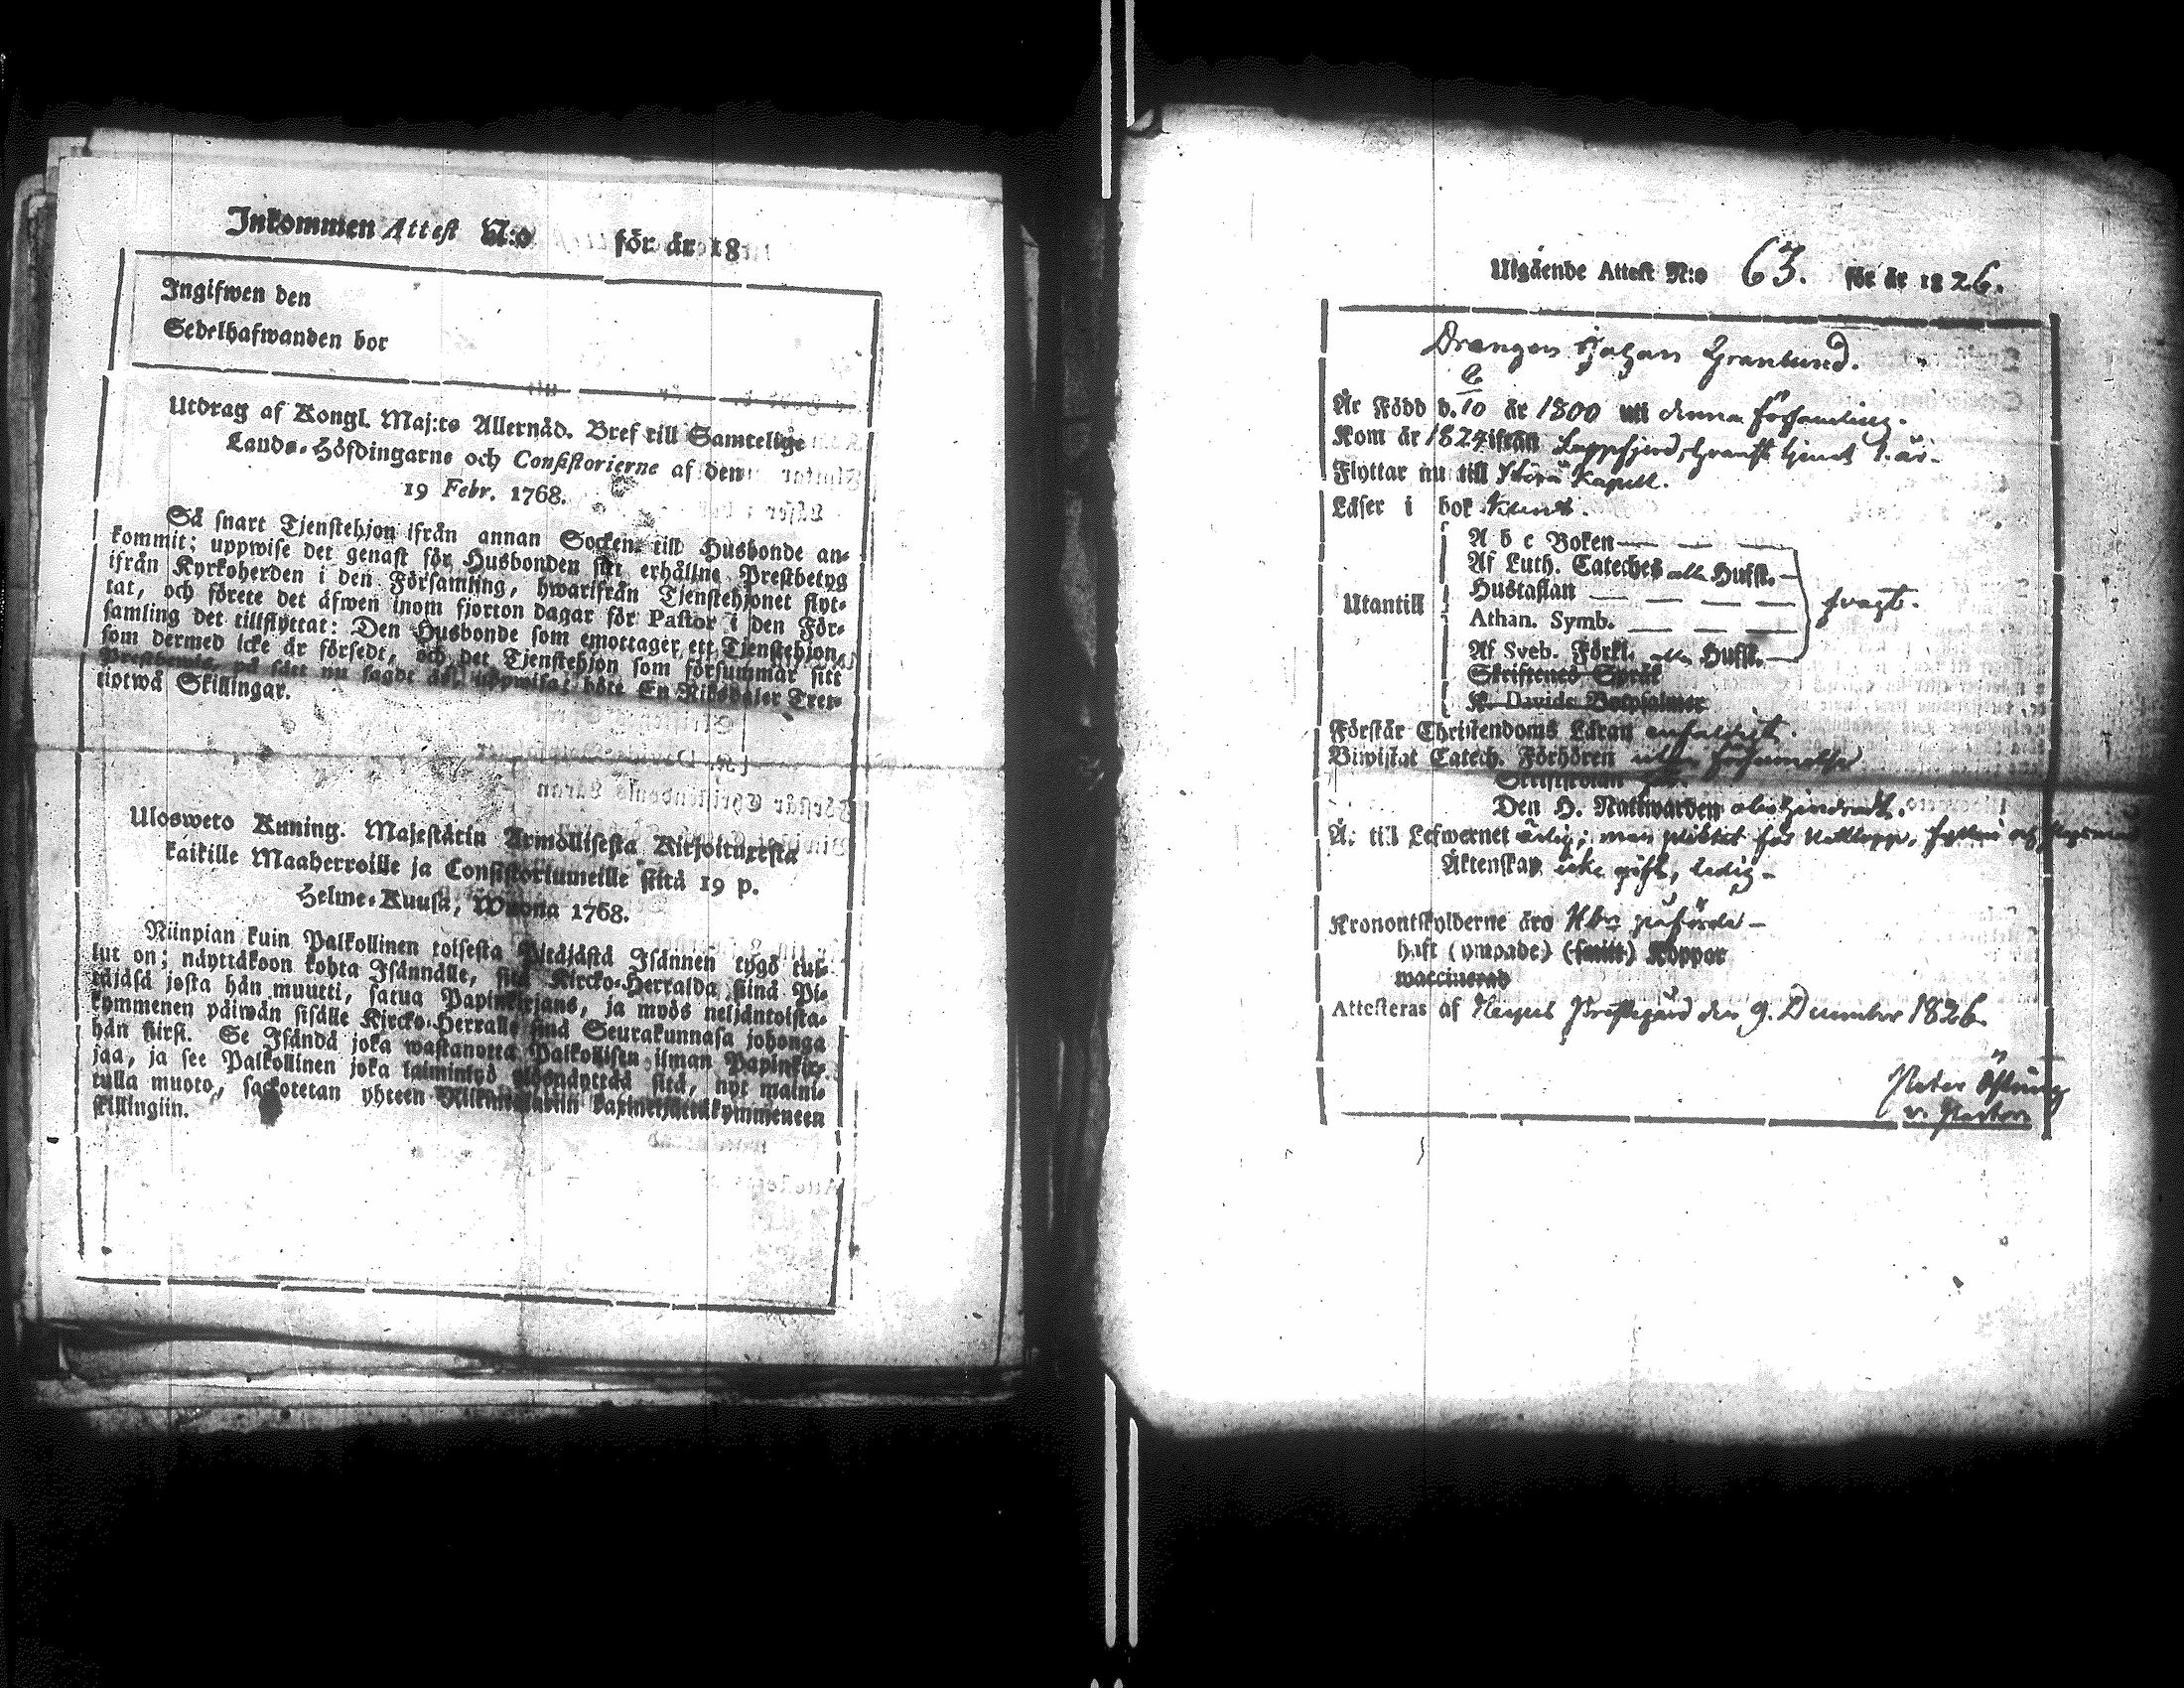 Inkommen Attest N:o för år 18
Ingifwen den
Sedelhafwanden bor
Utdrag af Kongl. Maj:ts Allernåd. Bref till Samtelige
Lands-Höfdingarne och Consistorierne af den
19 Febr. 1768.
Så snart Tjenstehjon ifrån annan Socken till Husbonde an-
kommit; uppwise det genast för Husbonden sitt erhållne Prestbetyg
ifrån Kyrkoherden i den Församling, hwarifrån Tjenstehjonet flyt-
tat, och förete det äfwen inom fjorton dagar för Pastor i den För-
samling det tillflyttat: Den Husbonde som emottager ett Tjenstehjon,
som dermed icke är försedt, och det Tjenstehjon som försummar sitt
Prestbetyg, på sätt nu sagdt är, uppwisa, böte En Riksdaler Tret-
tiotwå Skillingar.
Ulosweto Kuning. Majestätin Armollisesta Kirjoituxesta
kaikille Maaherroille ja Consistoriumeille siitä 19 p.
Helme-Kuusa, Wuonna 1768.
Niinpian kuin Palkollinen toisesta Pitäjästä Isännen tygö tul-
lut on; näyttäkoon kohta Isännälle, sitä Kircko-Herralda siinä Pi-
täjäsä josta hän muutti, saatua Papinkirjans, ja myös neljäntoista-
kymmenen päiwän sisälle Kircko-Herralle siinä Seurakunnasa johonga
hän siirsi. Se Isändä joka wastanotta Palkollisen ilman Papinkir-
jaa, ja see Palkollinen joka laimintyö ylösnäyttää sitä, nyt maini-
tulla muoto, sackotetan yhteen Riksiin kaxineljättäkymmeneen
skillingiin.
Utgående Attest N:o 63. för år 1826.
Drengen Johan Granlund.
Är Född d. 10 år 1800 uti denna Församling.
Kom år 1824 ifrån Lappfjerd, tjent 1. år.
Flyttar nu till Kapell.
Läser i bok
A b c Boken
Af Luth. Cateches alla Hufst.
Hustaflan
Utantill
Athan. Symb.
Af Sveb. Förkl. alla Hufst.
Skriftenes Språk
K. Davids Botpsalmer
Förstår Christendoms Läran enfaldigt.
Biwistat Catech. Förhören utan försummelse
Skriftskolan
Den H. Nattwarden obehindradt.
Är till Lefwernet ärlig; men pliktat för
Äktenskap icke gift, ledig
Kronoutskylderne äro påförde
haft (ympade) (smitt) Koppor
waccinerad
Attesteras af Prestegård den 9. December 1826.
Peter
v. Pastor